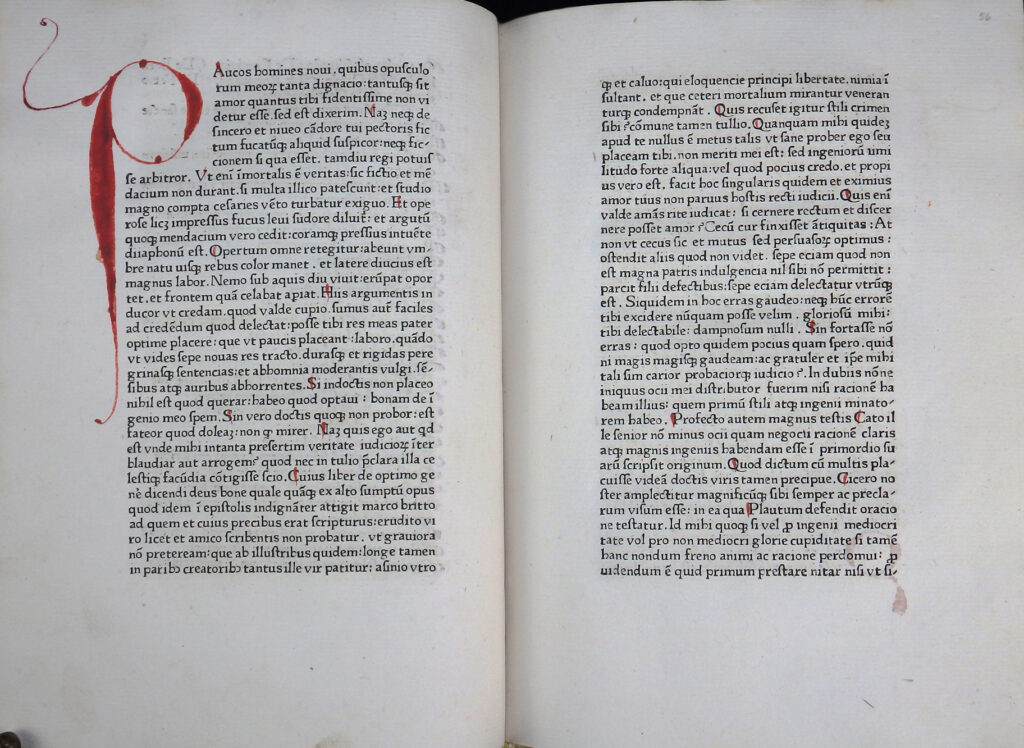 PAucos homines noui, quibus opusculo
rum meoꝝ tanta dignacio: tantusqꝫ sit
amor quantus tibi fidentissime non vi
detur esse. sed est dixerim. Naꝫ neqꝫ de
sincero et niueo cãdore tui pectoris fic
tum fucatũqꝫ aliquid suspicor: neqꝫ fic⸗
cionem si qua esset, tamdiu regi potuis
se arbitror. Vt enĩ ĩmortalis ẽ veritas: sic fictio et mẽ
dacium non durant. si multa illico patescunt: et studio
magno compta cesaries vẽto turbatur exiguo. Et ope
rose licꝫ impressus fucus leui sudore diluit̃: et argutũ
quoqꝫ mendacium vero cedit: coramqꝫ pressius intuẽte
diiaphonũ est. Opertum omne retegitur: abeunt vm⸗
bre natu uisqꝫ rebus color manet. et latere diucius est
magnus labor. Nemo sub aquis diu viuit: erũpat opor
tet. et frontem quã celabat apiat. Hiis argumentis in
ducor vt credam. quod valde cupio. sumus aut̃ faciles
ad credẽdum quod delectat: posse tibi res meas pater
optime placere: que vt paucis placeant: laboro. quãdo
vt vides sepe nouas res tracto. durasqꝫ et rigidas pere
grinasqꝫ sentencias: et abhomnia moderantis vulgi sẽ⸗
sibus atqꝫ auribus abhorrentes. Si indoctis non placeo
nihil est quod querar: habeo quod optaui: bonam de ĩ
genio meo spem. Sin vero doctis quoqꝫ non probor: est
fateor quod doleaꝫ: non qꝫ mirer. Naꝫ quis ego aut qd
est vnde mihi intanta presertim veritate iudicioꝝ ĩter
blaudiar aut arrogem? quod nec in tulio p̃clara illa ce
lestiqꝫ facũdia cõtigisse scio. Cuius liber de optimo ge
nẽ dicendi deus bone quale quãqꝫ ex alto sumptũ opus
quod idem ĩ epistolis indignãter attigit marco britto
ad quem et cuius precibus erat scripturus: erudito vi
ro licet et amico scribentis non probatur. vt grauiora
nõ preteream: que ab illustribus quidem: longe tamen
in paribꝫ creatoribꝫ tantus ille vir patitur: asinio vtro
56
qꝫ et caluo: qui eloquencie principi libertate. nimia ĩ
sultant. et que ceteri mortalium mirantur veneran
turqꝫ condempnãt. Quis recuset igitur stili crimen
sibi ? cõmune tamen tullio. Quanquam mihi quideꝫ
apud te nullus ẽ metus talis vt sane prober ego seu
placeam tibi. non meriti mei est: sed ingeniorũ simi
litudo forte aliqua: vel quod pocius credo. et propi
us vero est. facit hoc singularis quidem et eximius
amor tuus non paruus hostis recti iudicii. Quis enĩ
valde amãs rite iudicat: si cernere rectum et discer
nere posset amor? Cecũ cur finxisset ãtiquitas: At
non vt cecus sic et mutus sed persuasoꝝ optimus:
ostendit aliis quod non videt. sepe eciam quod non
est magna patris indulgencia nil sibi nõ permittit:
parcit filii defectibus: sepe eciam delectatur vtrũqꝫ
est. Siquidem in hoc erras gaudeo: neqꝫ huc errorẽ
tibi excidere nũquam posse velim. gloriosũ mihi:
tibi delectabile: dampnosum nulli. Sin fortasse nõ
erras: quod opto quidem pocius quam spero. quid
ni magis magisqꝫ gaudeam: ac gratuler et ip̃e mihi
tali sim carior probaciorqꝫ iudicio?. In dubiis nõne
iniquus ocii mei distributor fuerim nisi racionẽ ha
beam illius: quem primũ stili atqꝫ ingenii minato⸗
rem habeo. Profecto autem magnus testis Cato il
le senior nõ minus ocii quam negocii racionẽ claris
atqꝫ magnis ingeniis habendam esse ĩ primordio su
arũ scripsit originum. Quod dictum cũ multis pla⸗
cuisse videã doctis viris tamen precipue. Cicero no
ster amplectitur magnificũqꝫ sibi semper ac precla⸗
rum visum esse: in ea qua Plautum defendit oracio
ne testatur. Id mihi quoqꝫ si vel ꝓ ingenii mediocri
tate vol pro non mediocri glorie cupiditate si tamẽ
hanc nondum freno animi ac racione perdomui: ꝓ
uidendum ẽ quid primum prestare nitar nisi vt si⸗